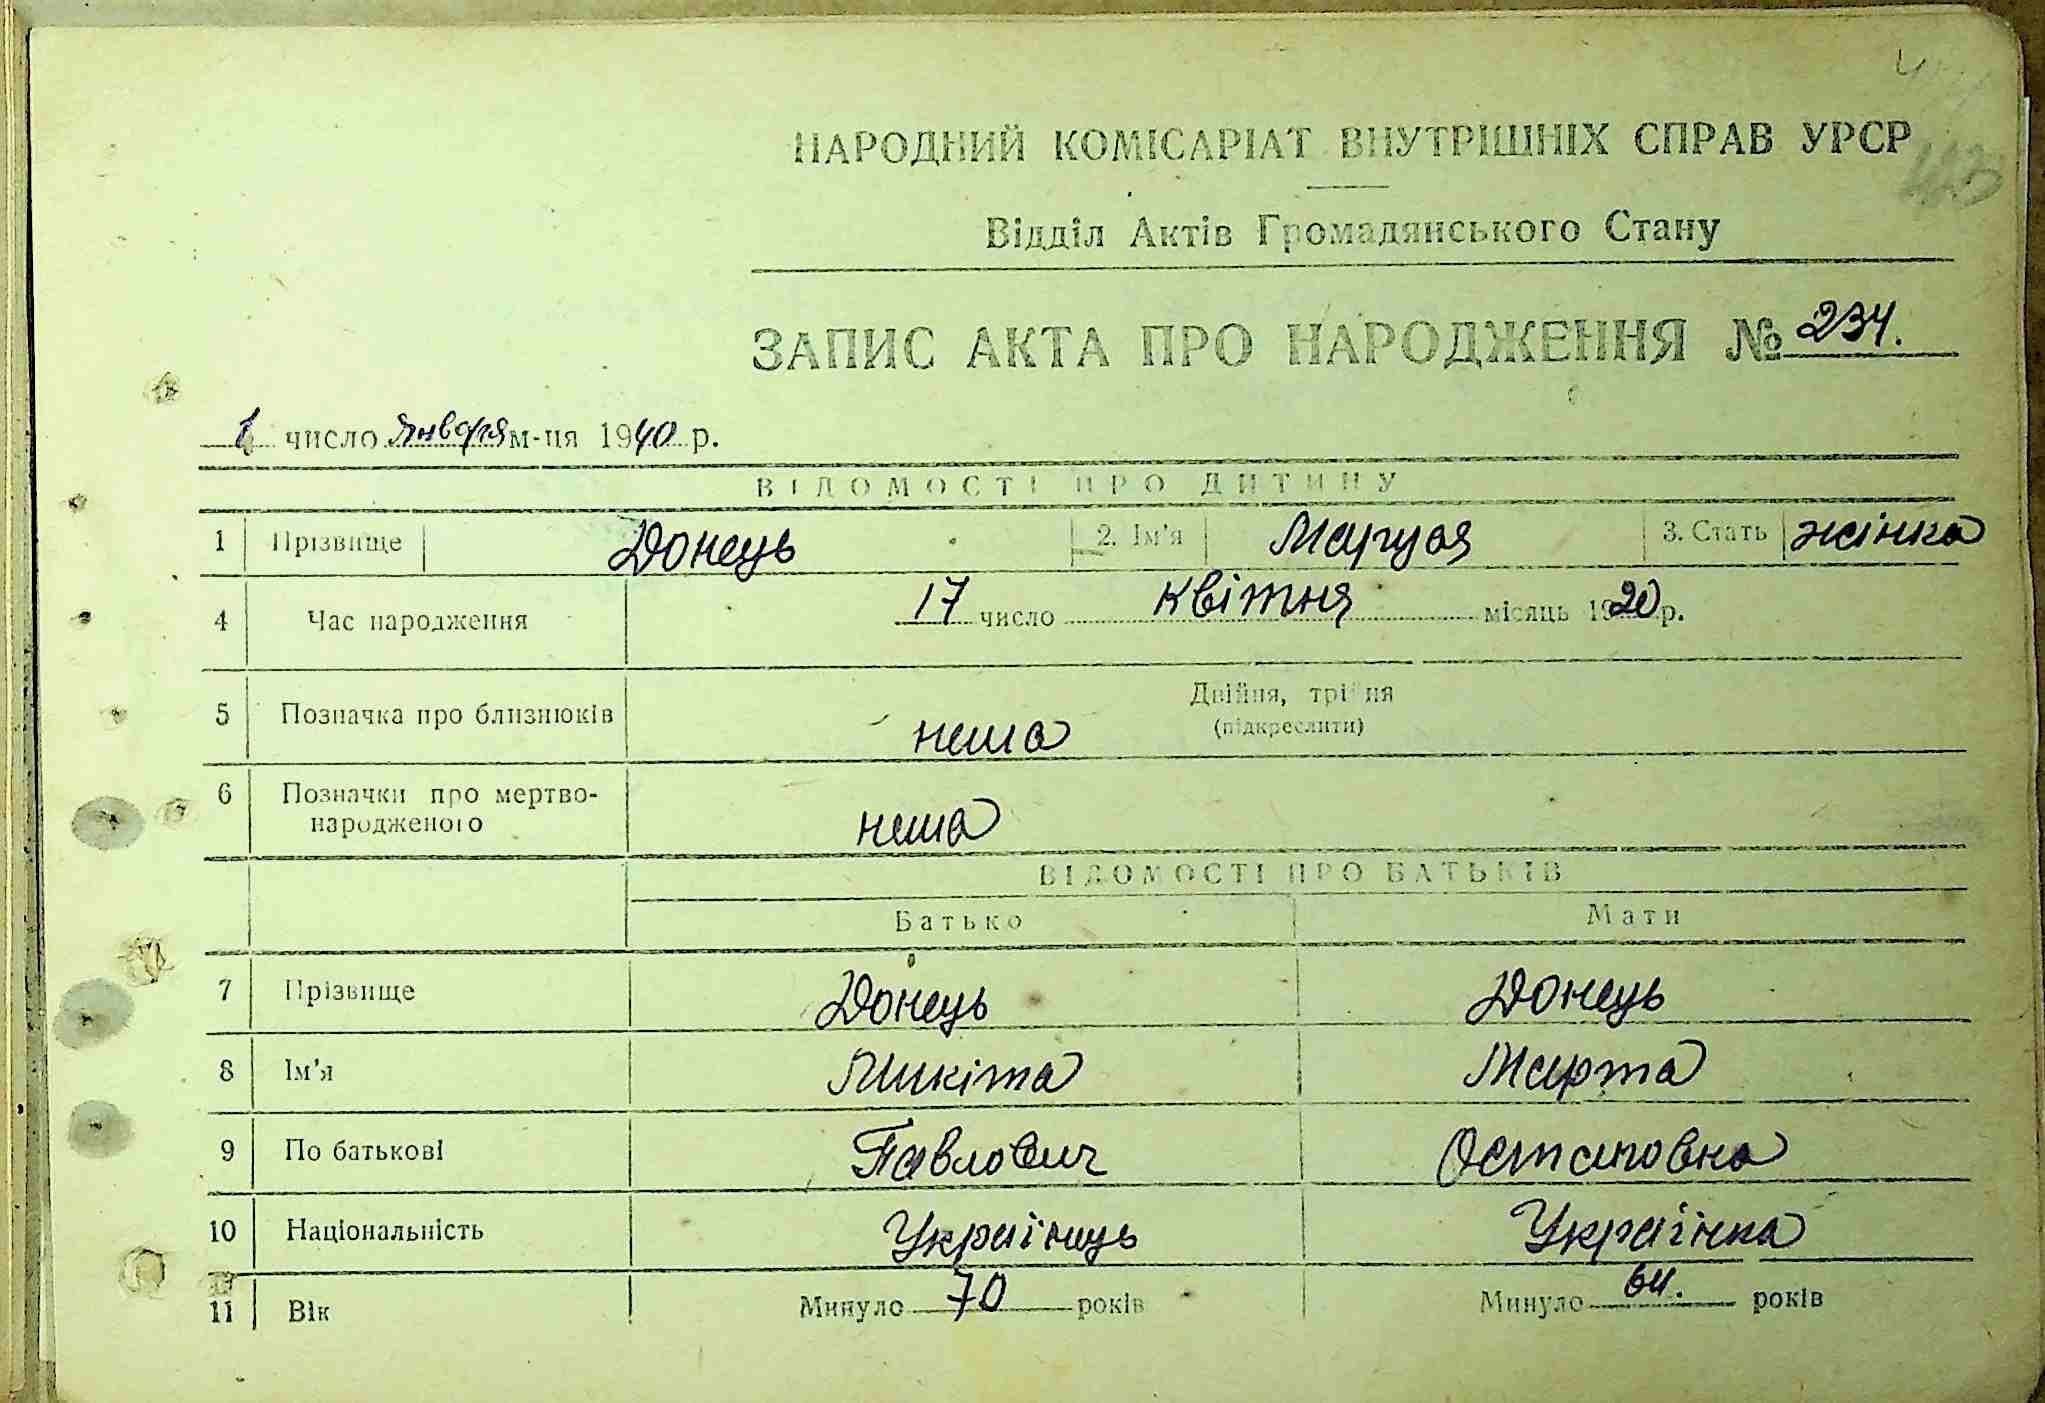 НАРОДНИЙ КОМІСАРІАТ ВНУТРІШНІХ СПРАВ УРСР
Відділ Актів Громадянського Стану
ЗАПИС АКТА ПРО НАРОДЖЕННЯ № 234.
1 число января м-ця 1940 р.
ВІДОМОСТІ ПРО ДИТИНУ
1 Прізвище Донець 2. Ім'я Маруся 3. Стать жінка
4 Час народження 17 число квітня місяць 1920 р.
5 Позначка про близнюків нема Двійня, трійня
(підкреслити)
6 Позначки про мертво-
народженого нема
ВІДОМОСТІ ПРО БАТЬКІВ
Батько Мати
7 Прізвище Донець Донець
8 Ім'я Микіта Марта
9 По батькові Павлович Остаповна
10 Національність Українець Українка
11 Вік Минуло 70 років Минуло 64. років